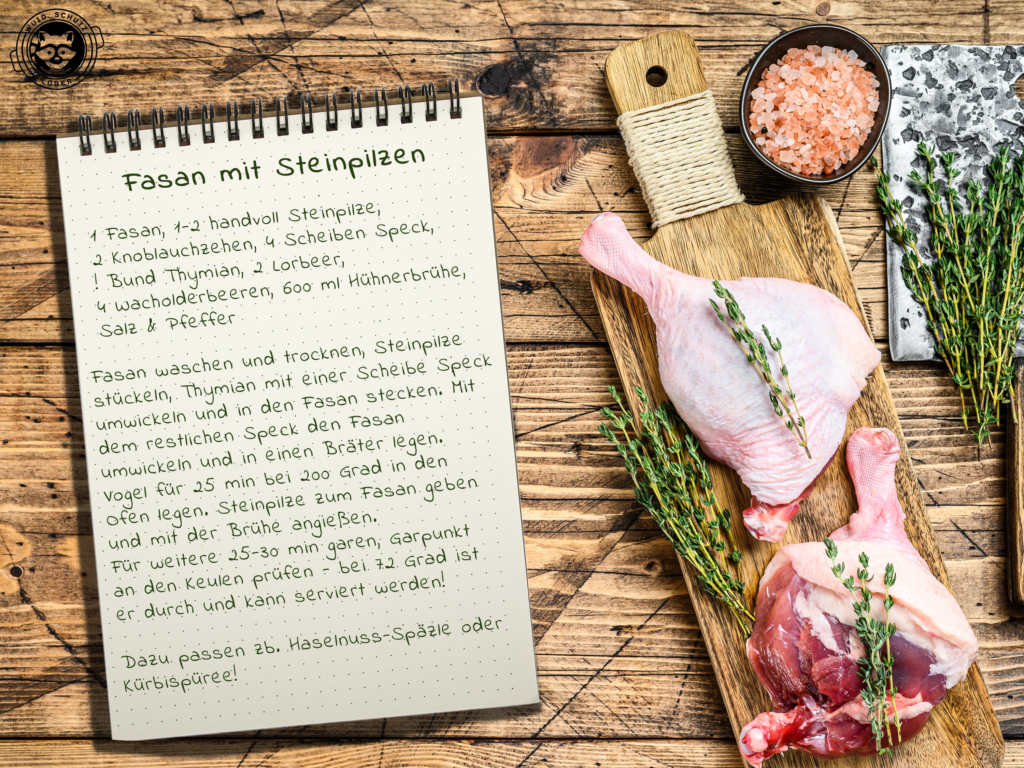 WUID. SCHUTZ
Fasan mit Steinpilzen
1 Fasan, 1-2 handvoll Steinpilze,
2 Knoblauchzehen, 4 Scheiben Speck,
! Bund Thymian, 2 Lorbeer,
4 Wacholderbeeren, 600 ml Hühnerbrühe,
Salz & Pfeffer
Fasan waschen und trocknen, Steinpilze
stückeln, Thymian mit einer Scheibe Speck
umwickeln und in den Fasan stecken. Mit
dem restlichen Speck den Fasan
umwickeln und in einen Bräter legen.
Vogel für 25 min bei 200 Grad in den
Ofen legen. Steinpilze zum Fasan geben
und mit der Brühe angießen.
Für weitere 25-30 min garen, Garpunkt
an den Keulen prüfen - bei 72 Grad ist
er durch und kann serviert werden!
Dazu passen zb. Haselnuss-Späzle oder
Kürbispüree!